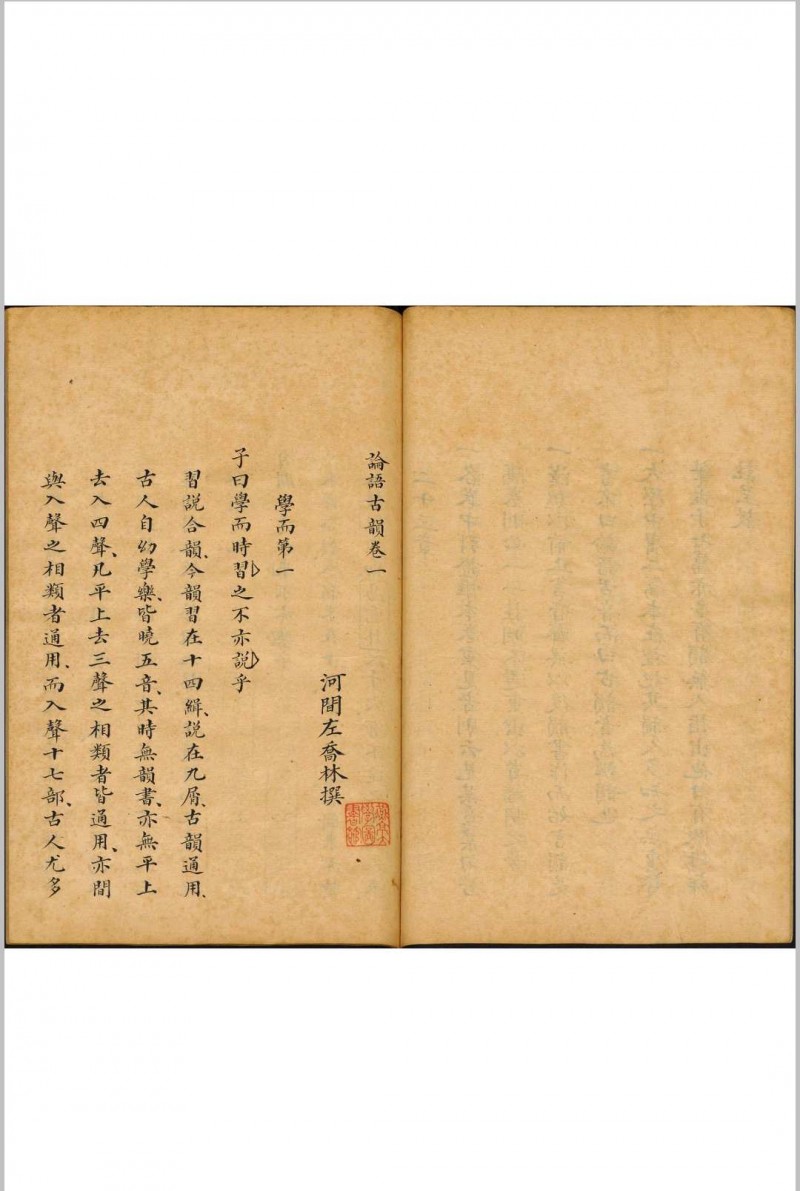 論語古韻卷一
河間左喬林撰
學而第一
子曰學而時習之不亦説乎
習説合韻、今韻習在十四緝、説在九屑、古韻通用、
古人自幼學樂、皆曉五音、其時無韻書、亦無平上
去入四聲、凡平上去三聲之相類者皆通用、亦間
與入聲之相類者通用、而入聲十七部、古人尤多